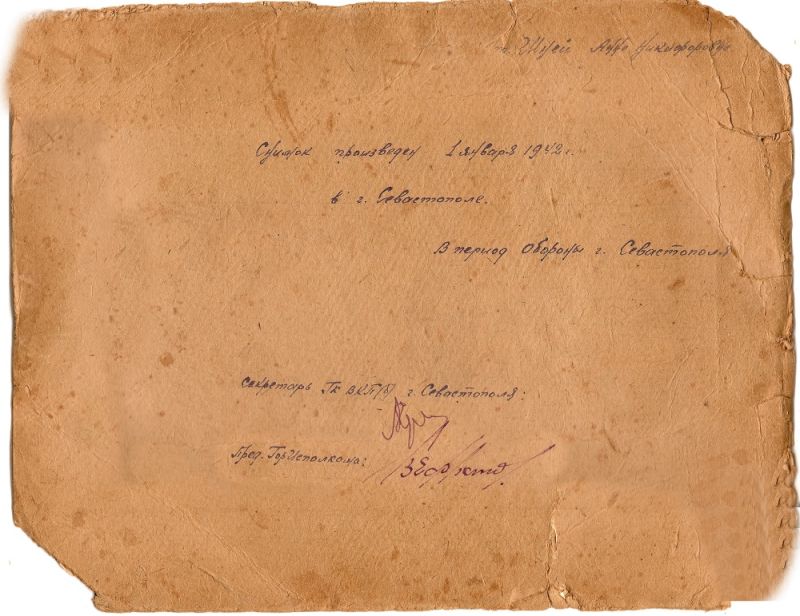 т. Шуей Анне Никифоровне
Снимок произведен 1 января 1942 г.
в г. Севастополе.
В период Обороны г. Севастополя
Секретарь ГК ВКП/б/ г. Севастополя:
Пред. ГорИсполкома: